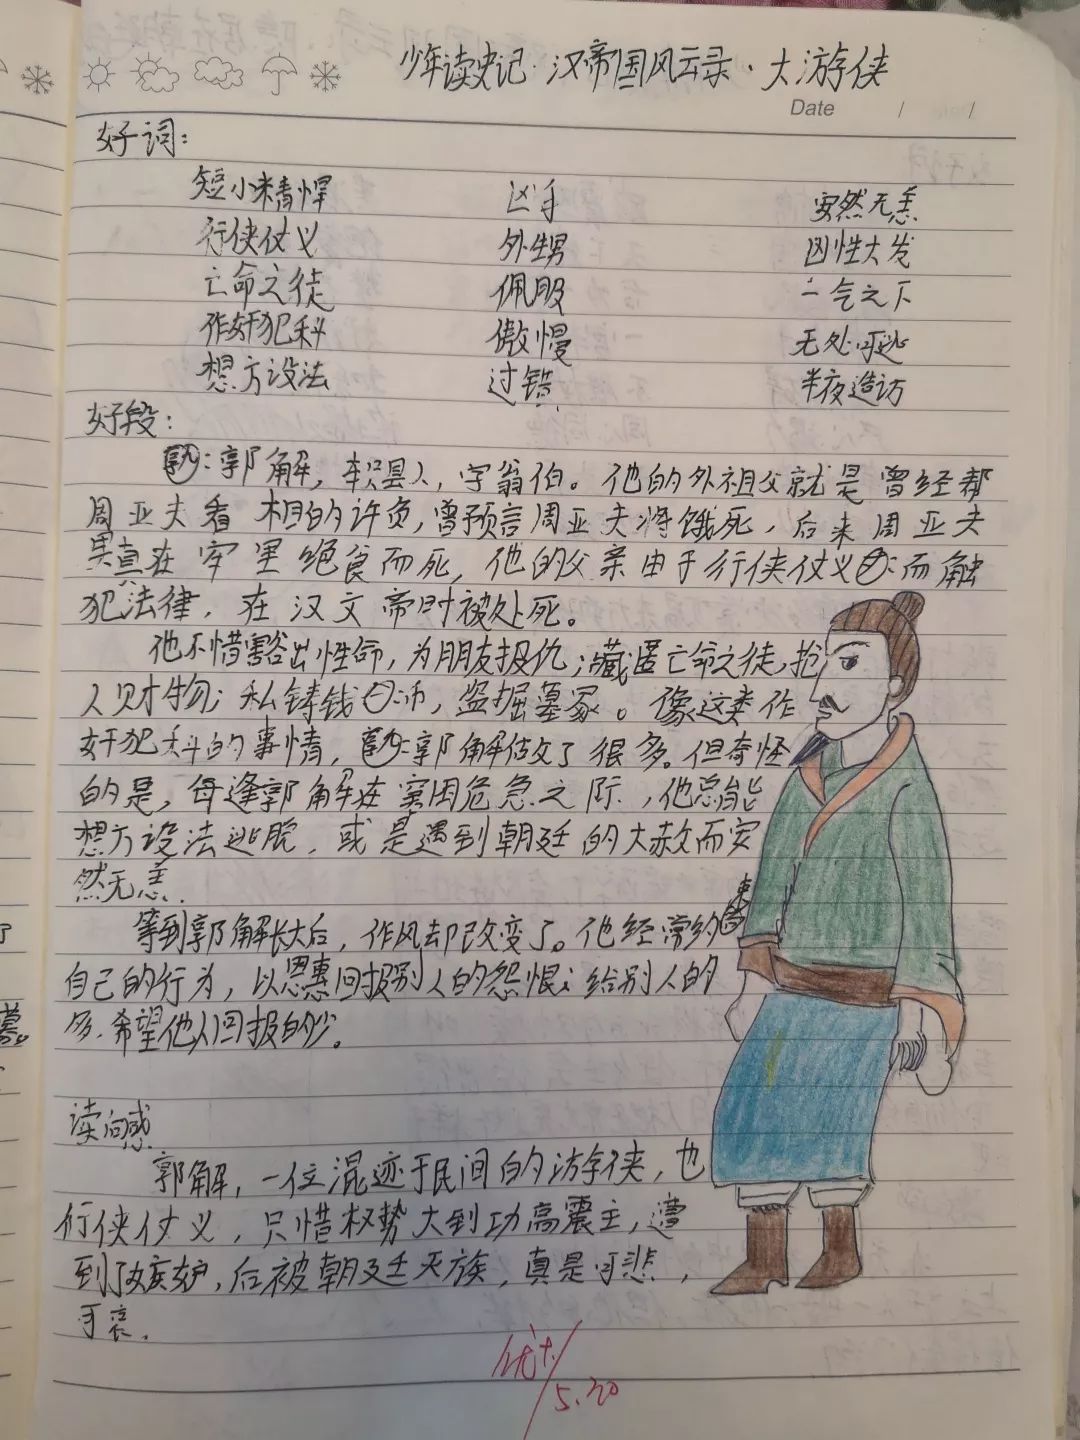 少年读史记·汉帝国风云录·大游侠
Date / /
好词：
短小精悍 凶手 安然无恙
行侠仗义 外甥 凶性大发
亡命之徒 佩服 一气之下
作奸犯科 傲慢 无处可逃
想方设法 过错 半夜造访
好段：
郭解，轵县人，字翁伯。他的外祖父就是曾经帮
周亚夫看相的许负，曾预言周亚夫将饿死，后来周亚夫
果真在牢里绝食而死，他的父亲由于行侠仗义而触
犯法律，在汉文帝时被处死。
他不惜豁出性命，为朋友报仇；藏匿亡命之徒，抢
人财物；私铸钱币，盗掘墓冢。像这类作
奸犯科的事情，郭解做了很多。但奇怪
的是，每逢郭解在窘困危急之际，他总能
想方设法逃脱，或是遇到朝廷的大赦而安
然无恙.
等到郭解长大后，作风却改变了。他经常约束
自己的行为，以恩惠回报别人的怨恨；给别人的
多.希望他人回报的少。
读感
郭解，一位混迹于民间的游侠，也
行侠仗义，只惜权势大到功高震主，遭
到了嫉妒，后被朝廷灭族，真是可悲，
可哀.
优+
5.20